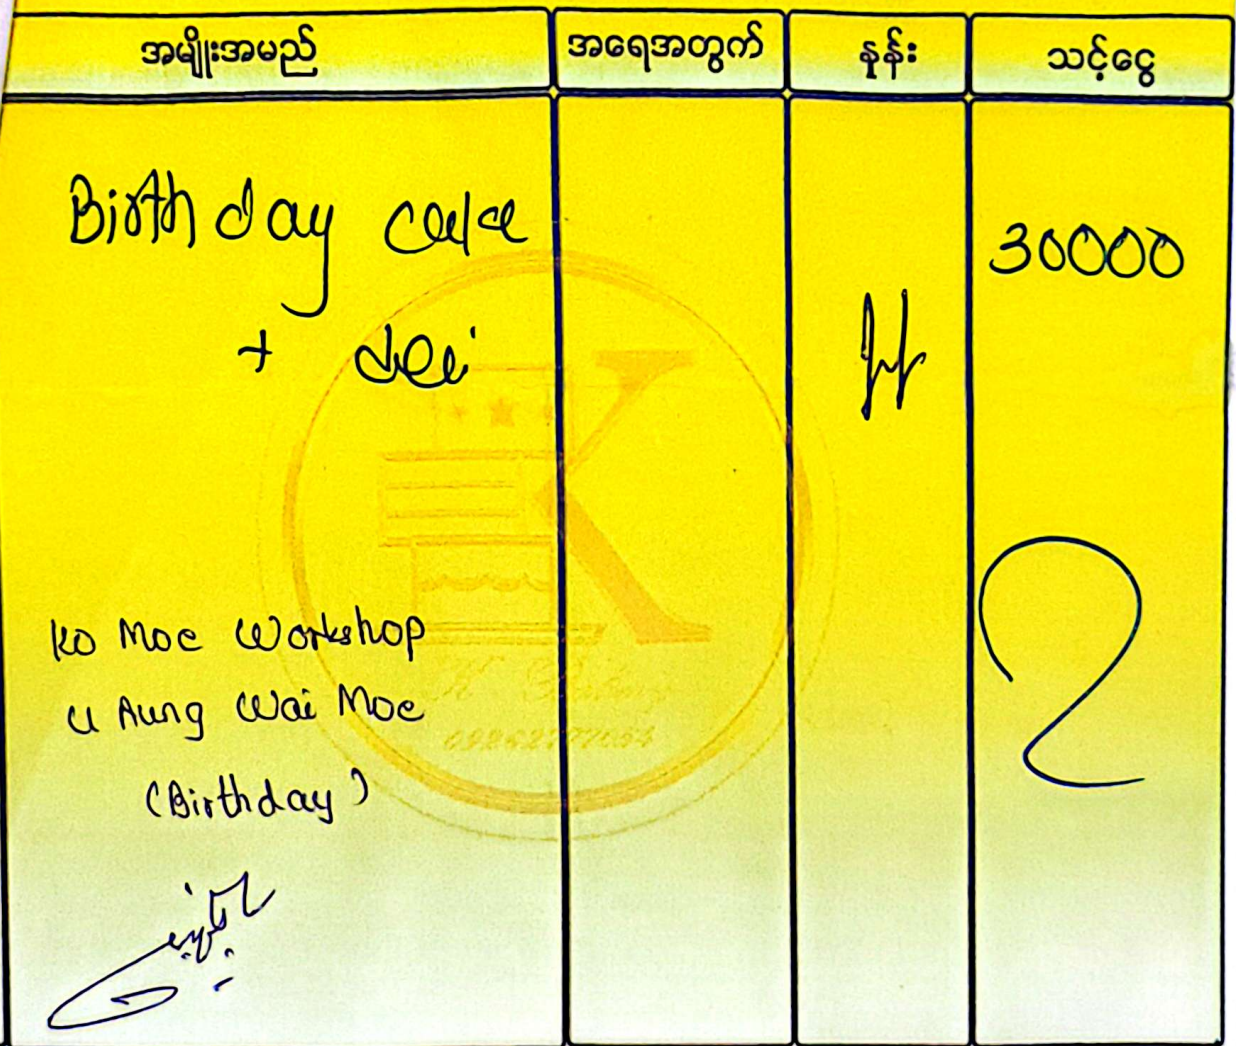 အမျိုးအမည် အရေအတွက် နှုန်း သင့်ငွေ
Birthday cake 30000
+ deli
Ko Moe Workshop
U Aung Wai Moe
(Birthday)